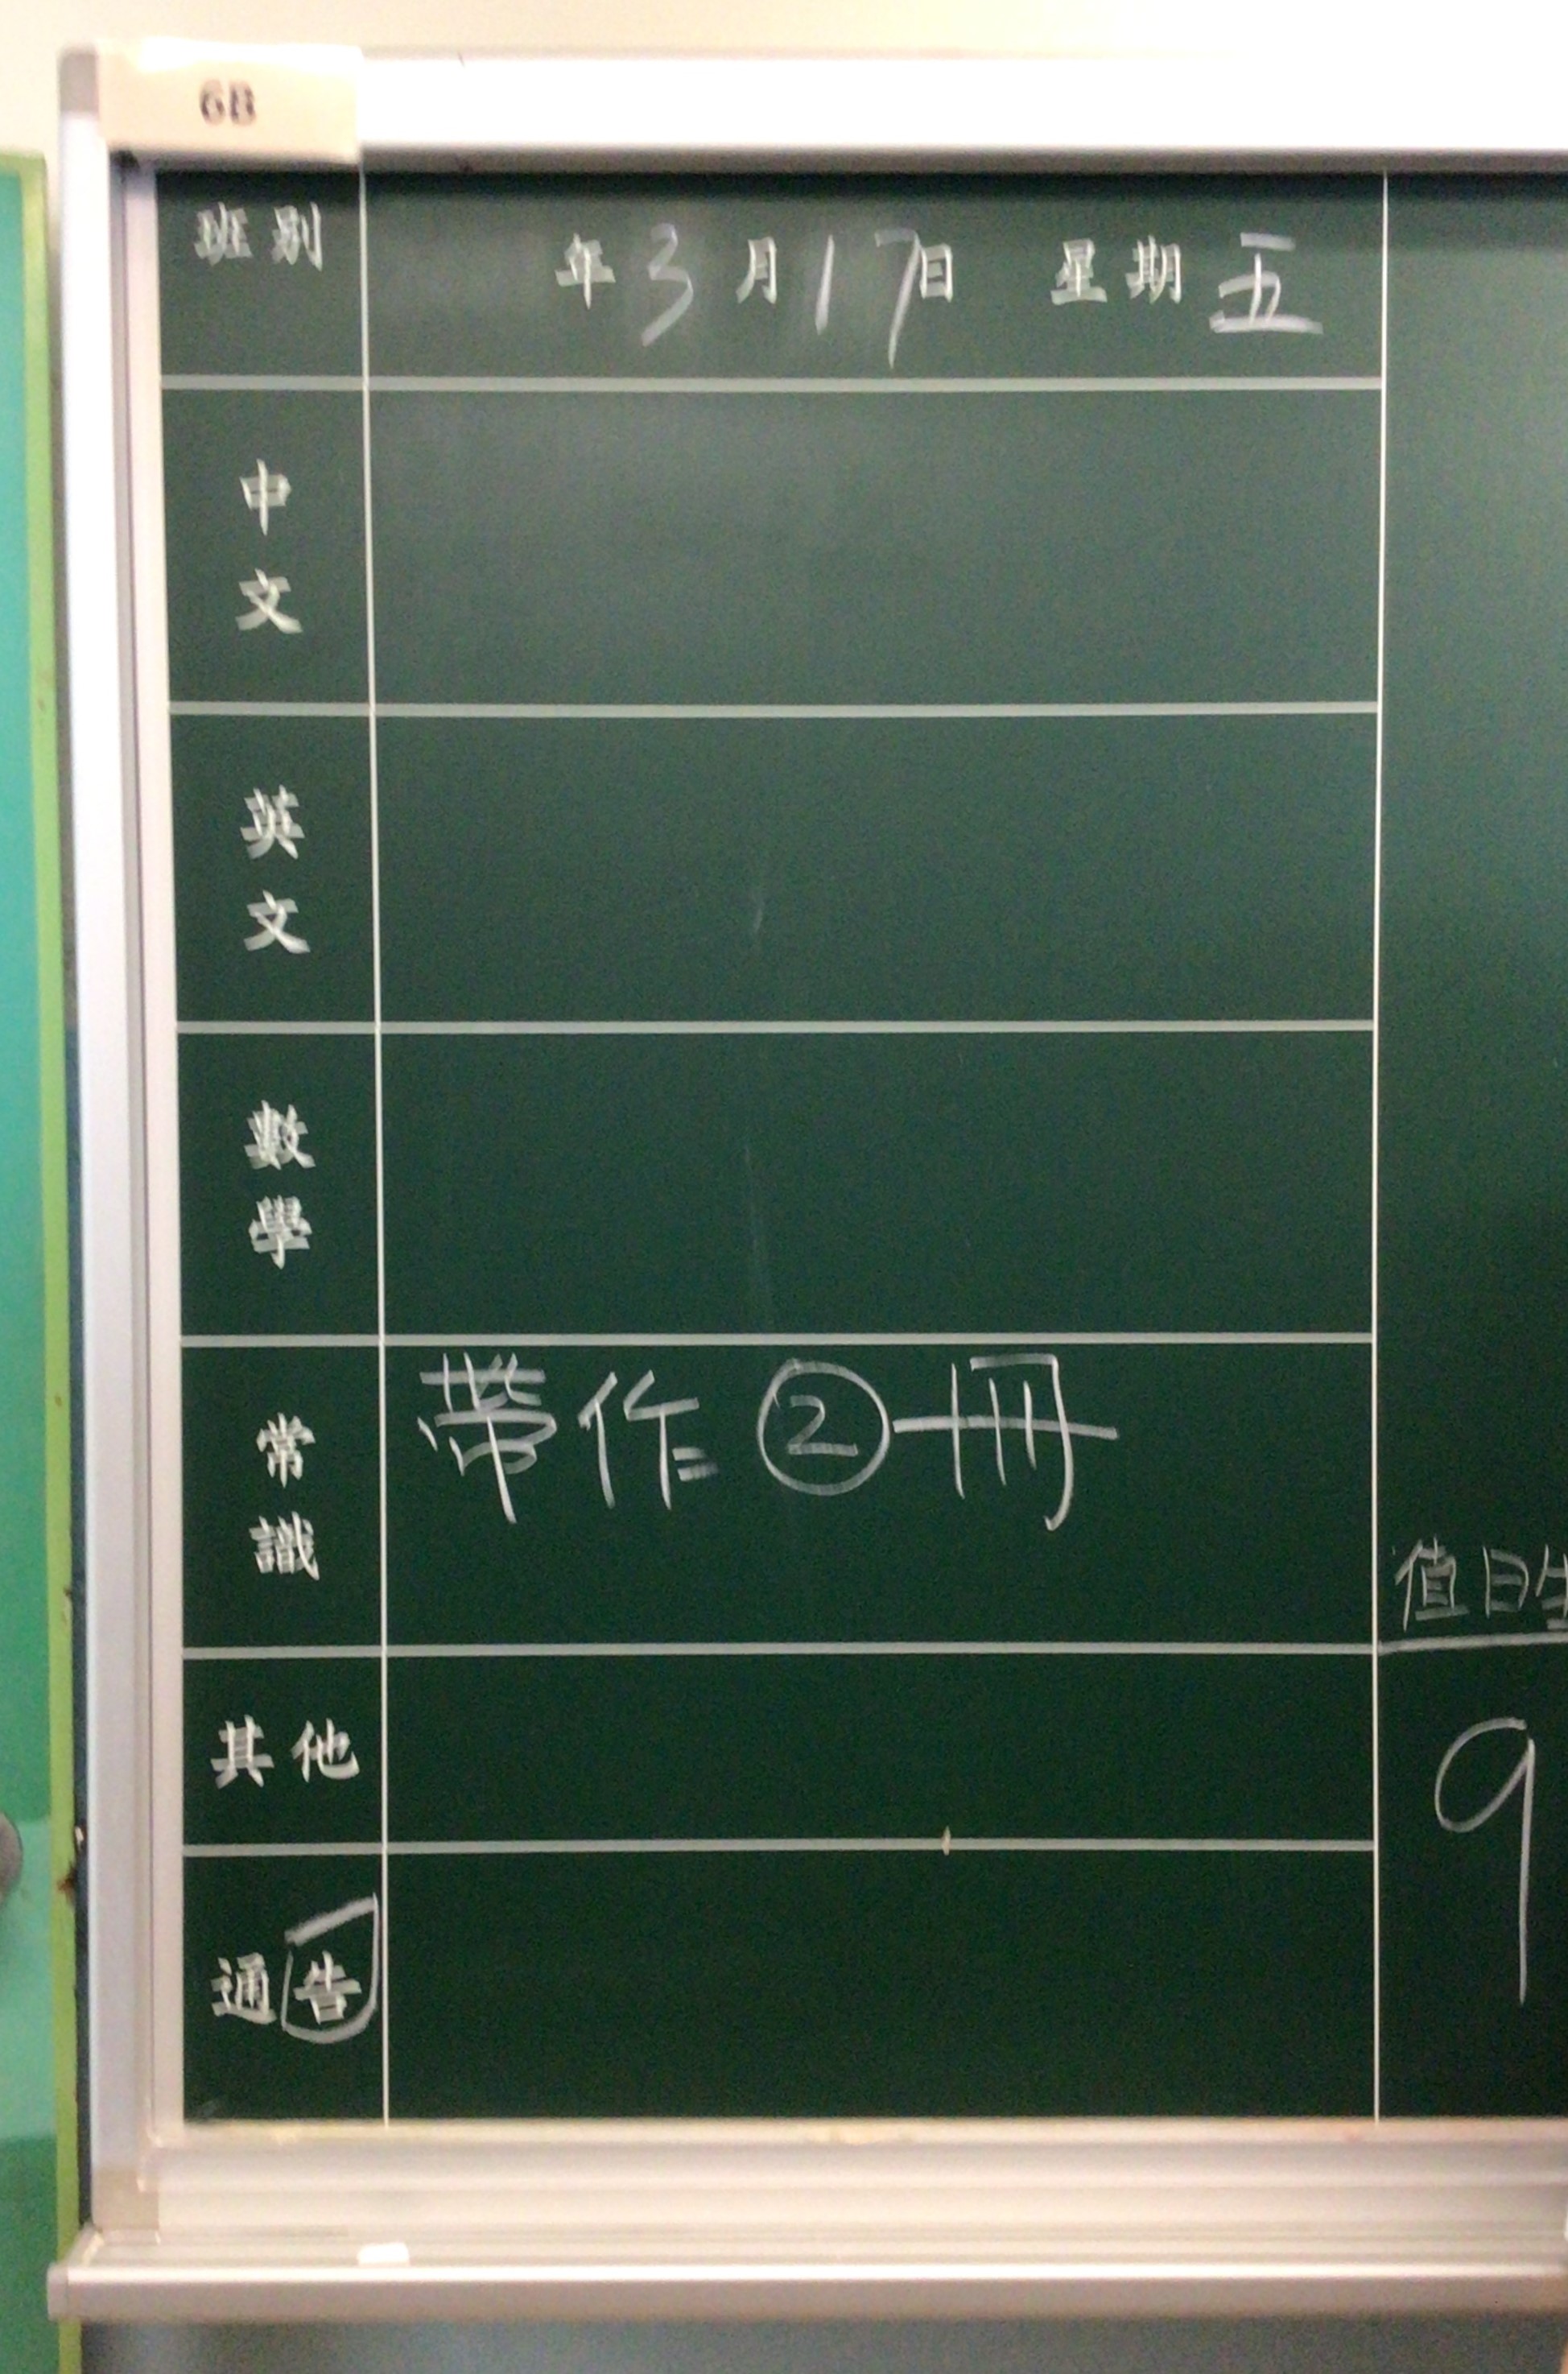 6B
班別 年3月17日 星期五
中文
英文
數學
常識 帶作②冊
其他
通告
值日生
9